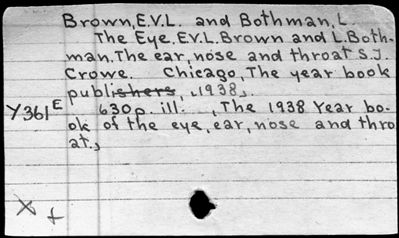 Brown, E.V.L. and Bothman, L.
The Eye. E.V.L. Brown and L. Both-
man. The ear, nose and throat S.J.
Crowe. Chicago, The year book
publishers, 1938.
Y361E 630p. ill. , The 1938 Year bo-
ok of the eye, ear, nose and thro
at.,